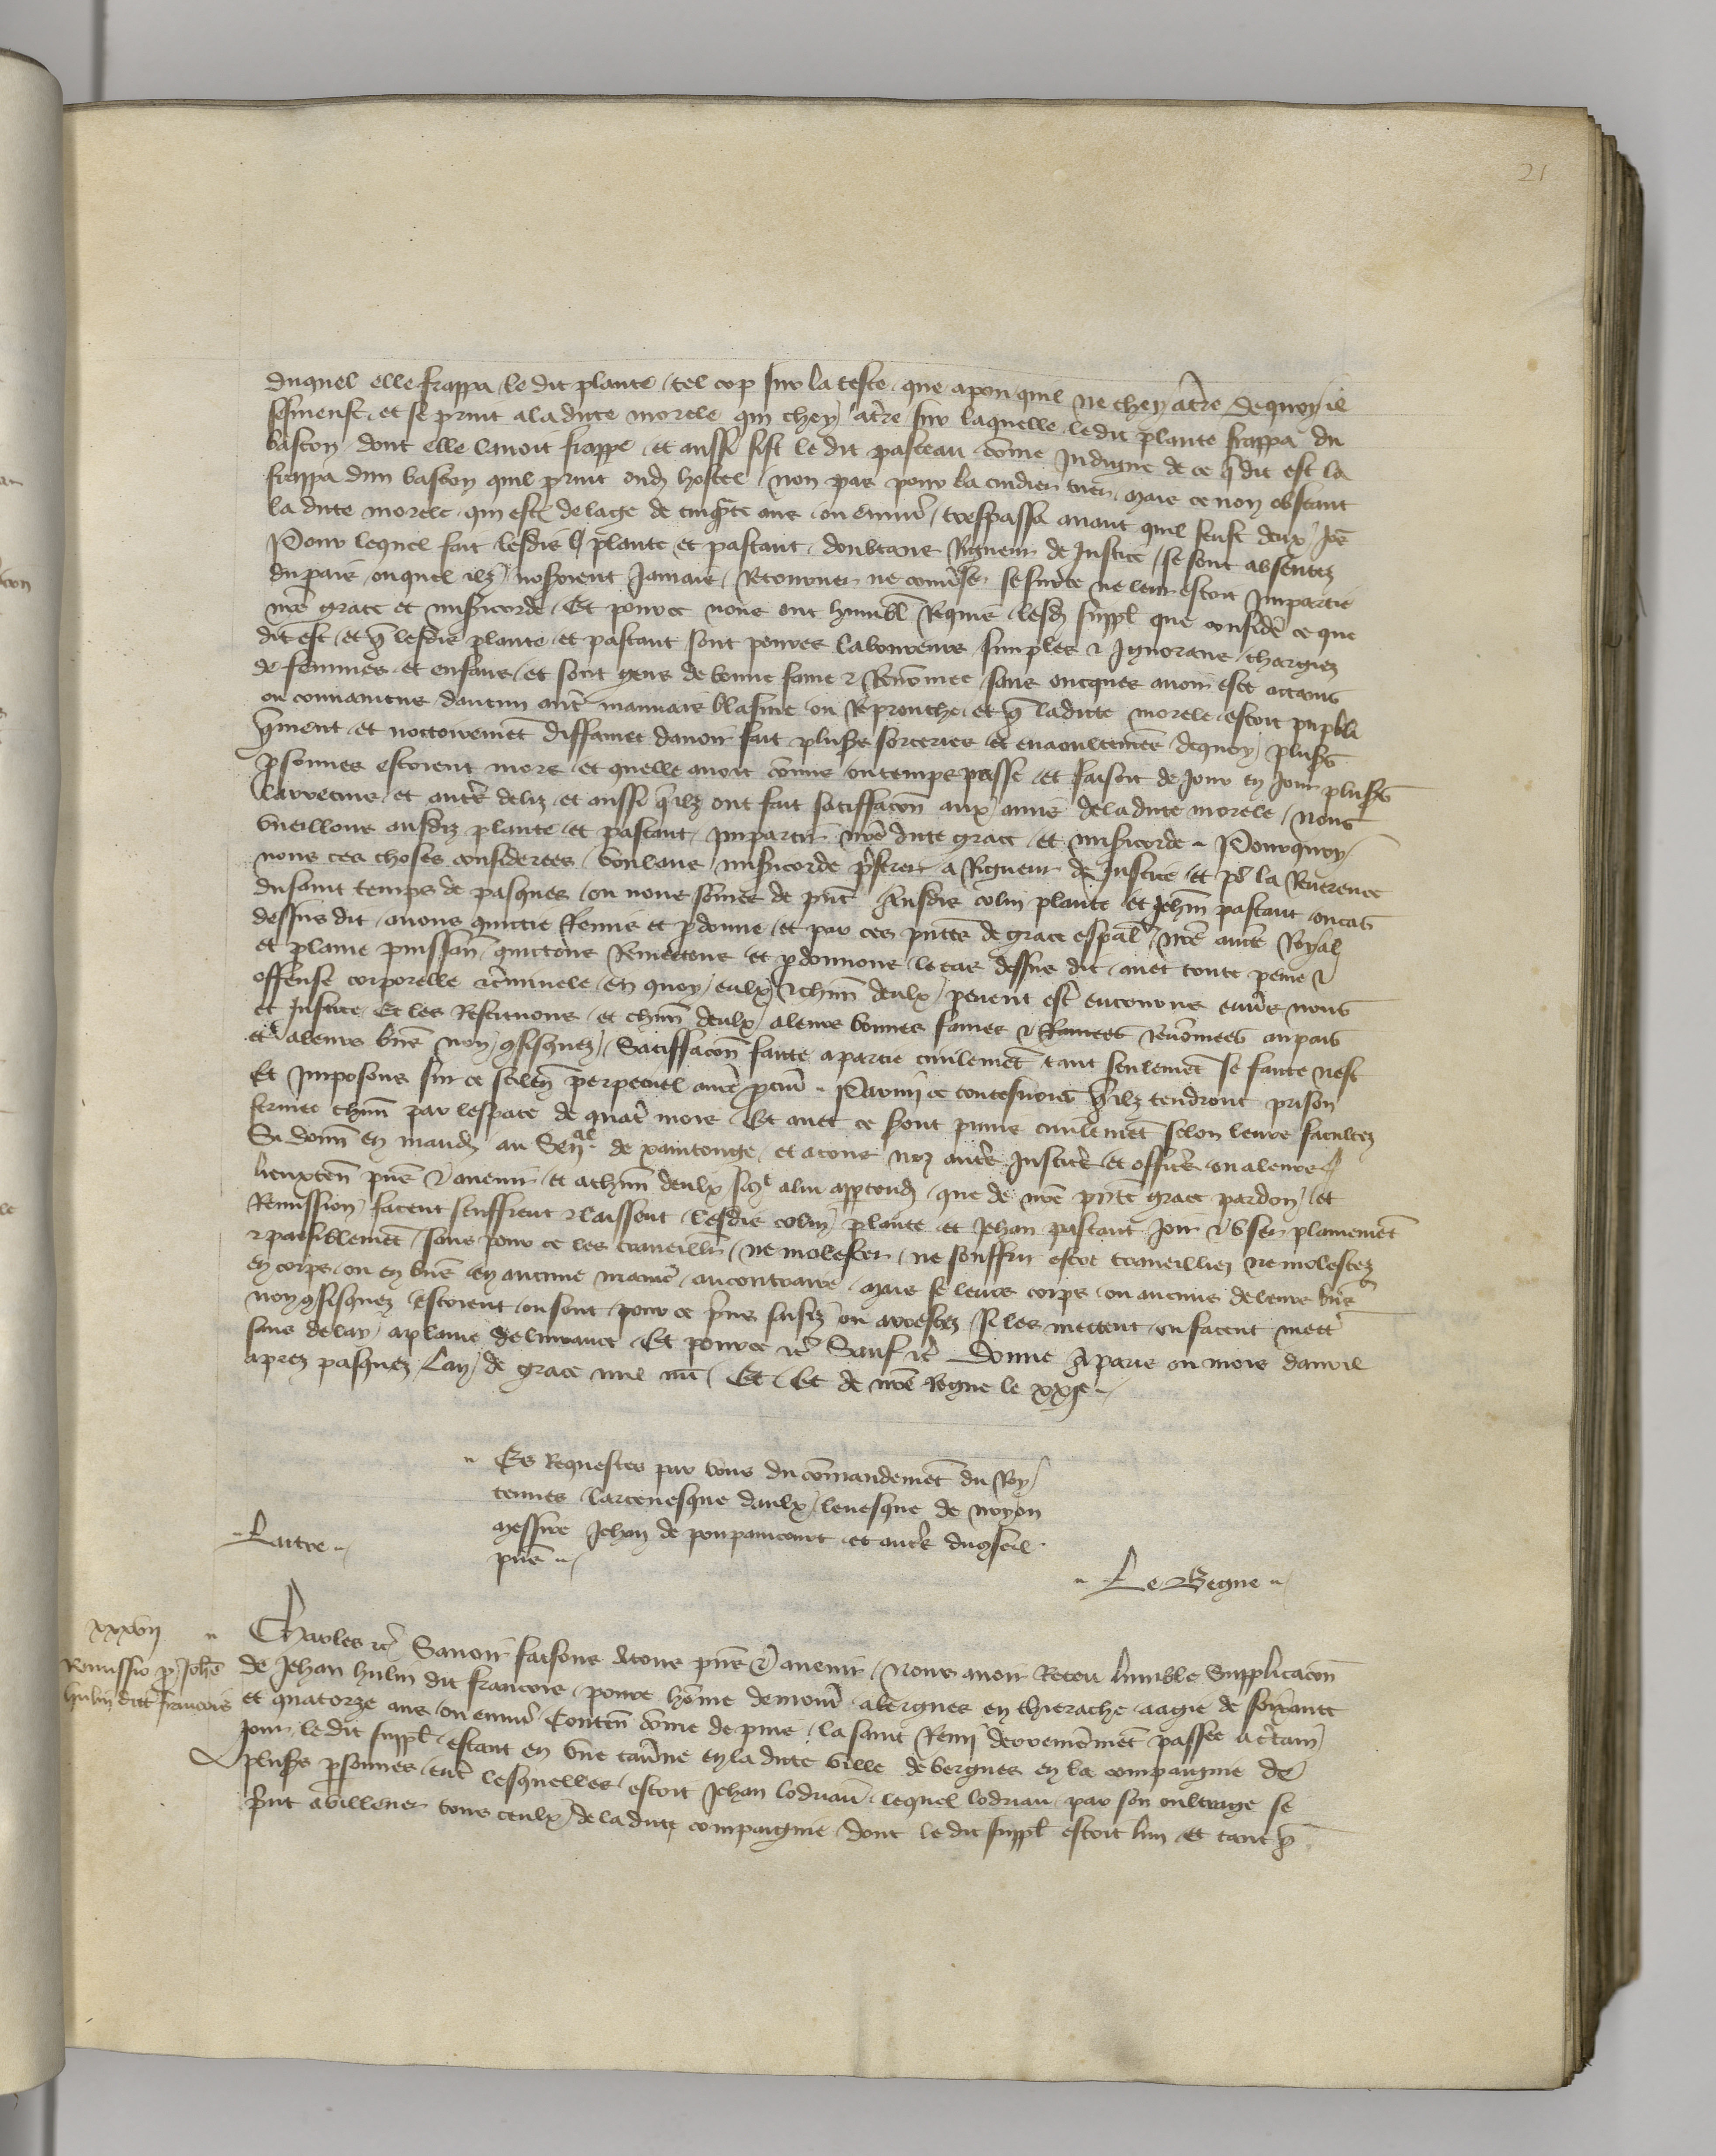 21
duquel elle frappa le dit plante tel cop sur la teste que apou quil ne chey atre dequoy il
sesmeust et se print a la dicte morele qui chey atre sur laquelle le dit plante frappa du
baston dont elle lavoit frappe et aussi fist le dit pasteau come indigne de ce q dit est la
frappa dun baston quil print oud hostel non pas pour la cuidier tuer mais ce non obstant
la dicte morele qui est de laage de cinqte ans ou environ trespassa avant quil feust deux jors
Pour lequel fait lesdis plante et pastant doubtans Rigueur de Justice se sont absentez
du pais ouquel ilz noseroient Jamais Retourner ne converser se sur ce ne leur estoit impartie
nre grace et misericorde Et pource nous ont humblt Requis lesd suppl que considere ce que
dit est et q lesdis plante et pastant sont povres laboureurs simples et Ignorans chargiez
de femmes et enfans et sont gens de bonne fame et Renomee sans oncques avoir este attains
ou convaincus daucun autre mauvais blasme ou Reprouche et q ladicte morele estoit publi
qment et notoiremet diffamee davoir fait plusrs sorceries et envoultemens dequoy plusrs
psonnes estoient mors et quelle avoit come ou temps passe et faisoit de Jour en Jour plusrs
larrecins et autres deliz et aussi quilz ont fait satiffacon aux amis de la dicte morele nous
vueillons ausdiz plante et pastant impartir nre dicte grace et misericorde Pourquoy
nous ces choses considerees voulans misericorde preferer a Rigueur de Justice et por la Reverence
du saint temps de pasques ou nous somes de pnt Ausdis colin plante et Jehan pastant ou cas
dessus dit avons quictie Remis et pdonne et par ces pntes de grace espal nre aucte Royal
et plaine puissan quictons Remettons et pdonnons le cas dessus dit avec toute peine et
offense corporelle criminele en quoy eulx et chun deulx pevent estre encourus envers nous
et Justice Et les Restituons et chun deulx a leurs bonnes fames et Renomees au pais
et a leurs biens non confisquez Satiffacon faicte a partie civilemet tant seulement se faicte nest
Et Imposons sur ce silen perpetuel a nre pcur Parmi ce toutesvoies quilz tendront prison
fermee chun par lespace de quatre mois Et avec ce sont punis civilemet selon leurs facultez
Si donn en mand au Senal de xaintonge et a tous noz autres Justic et offic ou a leurs
lieuxten pns et avenir et a chun deulx si come a lui appartend que de nre pnte grace pardon et
Remission facent seuffrent et laissent lesdis colin plante et Jehan pastant Joir et user plainemet
et paisiblemet sans pour ce les traveiller ne molester ne souffrir estre traveilliez ne molestez
en corps ou en biens en aucune maniere au contraire mais se leurs corps ou aucuns de leurs biens
non confisquez estoient ou sont pour ce prins saisiz ou arrestez si les mettent ou facent mettre
sans delay a plaine delivrance Et pource etc Sauf etc Donne A paris ou mois davril
apres pasques Lan de grace mil iiiic Et Et de nre Regne le xxe
Es Requestes par vous du comandemet du Roy
tenues larcevesque daulx levesque de noyon
messire Jehan de poupaincourt et autres du conseil
pns
Laitre
Le Begue
xxxvii
Remissio p Johe
hulin dict francois
Charles etc Savoir faisons a tous pns et avenir Nous avoir Receu lumble Supplicacon
de Jehan hulin dit francois povre home demour a Vergnes en thierache aagie de soixante
et quatorze ans ou environ Conten come depuis la saint Remi derrenierement passee a certain
Jour le dit suppl estant en une taverne en la dicte ville de vergnes en la compaignie de
plusrs psonnes entre lesquelles estoit Jehan lodriau lequel lodriau par son oultrage se
print a villener tous ceulx de la dicte compaignie dont le dit suppl estoit lun et tant q